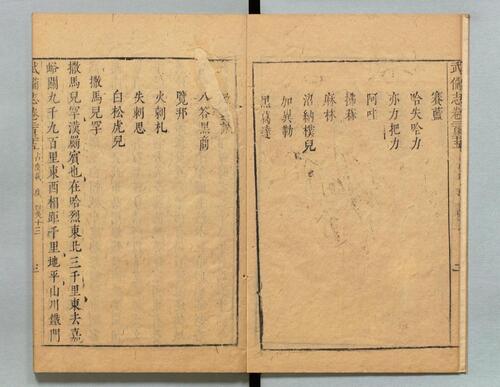 武備志卷二百三十五
賽藍
哈失哈力
亦力把力
阿哇
拂菻
麻林
沼納樸兒
加異勒
黑葛達
八答黑商
覽邦
火剌札
失剌思
白松虎兒
撒馬兒罕
撒馬兒罕漢罽賓也在哈烈東北三千里東去嘉
峪關九千九百里東西相距千里地平山川鐵門
武備志卷二百三十五
三